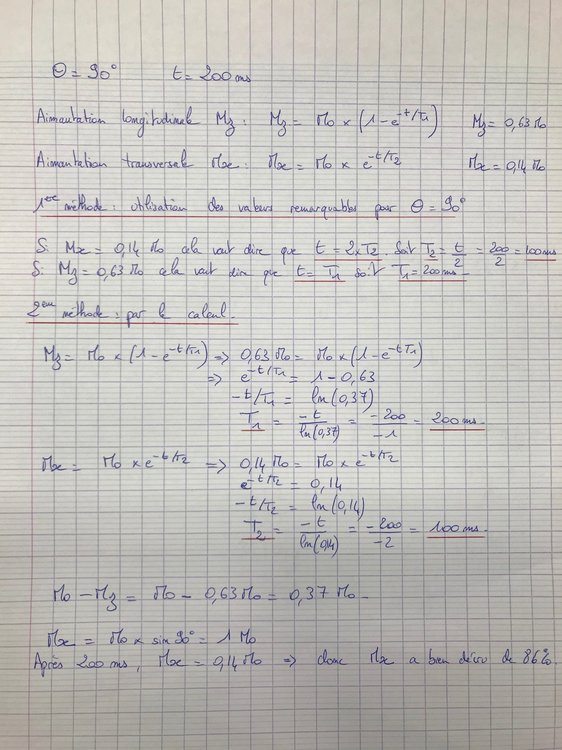 Θ = 90° t = 200 ms
Aimantation longitudinale Mz : Mz = M0 × (1 - e^-t/T1) Mz = 0,63 M0
Aimantation transversale Mx : Mx = M0 × e^-t/T2 Mx = 0,14 M0
1ère méthode : utilisation des valeurs remarquables pour Θ = 90°
Si Mx = 0,14 M0 cela veut dire que t = 2 × T2. Soit T2 = t/2 = 200/2 = 100 ms
Si Mz = 0,63 M0 cela veut dire que t = T1 soit T1 = 200 ms.
2ème méthode : par le calcul.
Mz = M0 × (1 - e^-t/T1) => 0,63 M0 = M0 × (1 - e^-t/T1)
=> e^-t/T1 = 1 - 0,63
-t/T1 = ln(0,37)
T1 = -t/ln(0,37) = -200/-1 = 200 ms.
Mx = M0 × e^-t/T2 => 0,14 M0 = M0 × e^-t/T2
e^-t/T2 = 0,14
-t/T2 = ln(0,14)
T2 = -t/ln(0,14) = -200/-2 = 100 ms.
M0 - Mz = M0 - 0,63 M0 = 0,37 M0.
Mx = M0 × sin 90° = 1 M0
Après 200 ms, Mx = 0,14 M0 => donc Mx a bien décru de 86%.